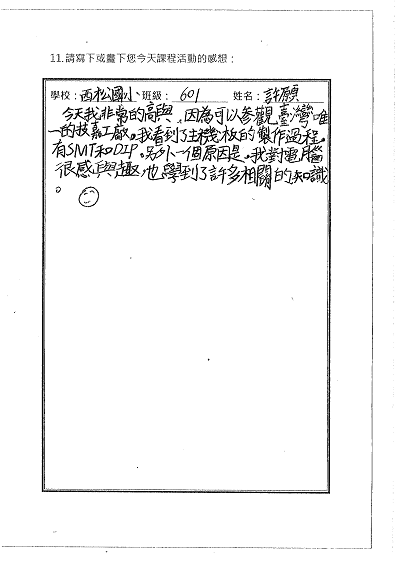 11.請寫下或畫下您今天課程活動的感想：
學校：西松國小 班級：601 姓名：許願
今天我非常的高興，因為可以參觀臺灣唯
一的技嘉工廠。我看到了主機板的製作過程。
有SMT和DIP。另外一個原因是，我對電腦
很感興趣也學到了許多相關的知識
。